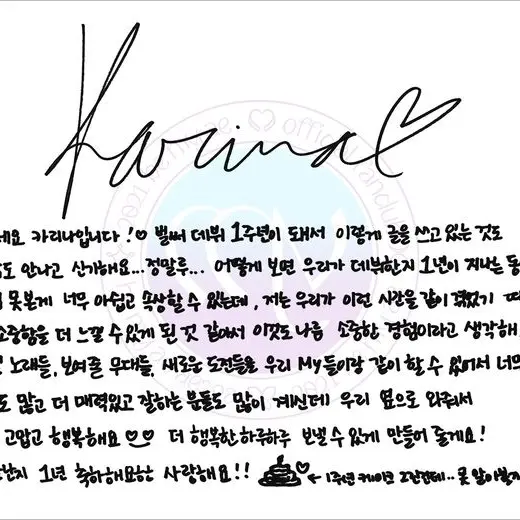 Karina
세요 카리나입니다!♡ 벌써 데뷔 1주년이 돼서 이렇게 글을 쓰고 있는 것도
도 안나고 신기해요...정말루... 어떻게 보면 우리가 데뷔한지 1년이 지나는 동
못본게 너무 아쉽고 속상할 수 있는데, 저는 우리가 이런 시간을 같이 겪었기 때
소중함을 더 느낄 수 있게 된 것 같아서 이것도 나름 소중한 경험이라고 생각해.
노래들, 보여줄 무대들, 새로운 도전들을 우리 My들이랑 같이 할 수 있어서 너무
도 많고 더 매력있고 잘하는 분들도 많이 계신데 우리 옆으로 와줘서
고맙고 행복해요♡♡ 더 행복한 하루하루 보낼 수 있게 만들어 줄게요!
난지 1년 축하해요한 사랑해요!! ← 1주년 케이크 그린건데.. 못 알아볼까
official fandu